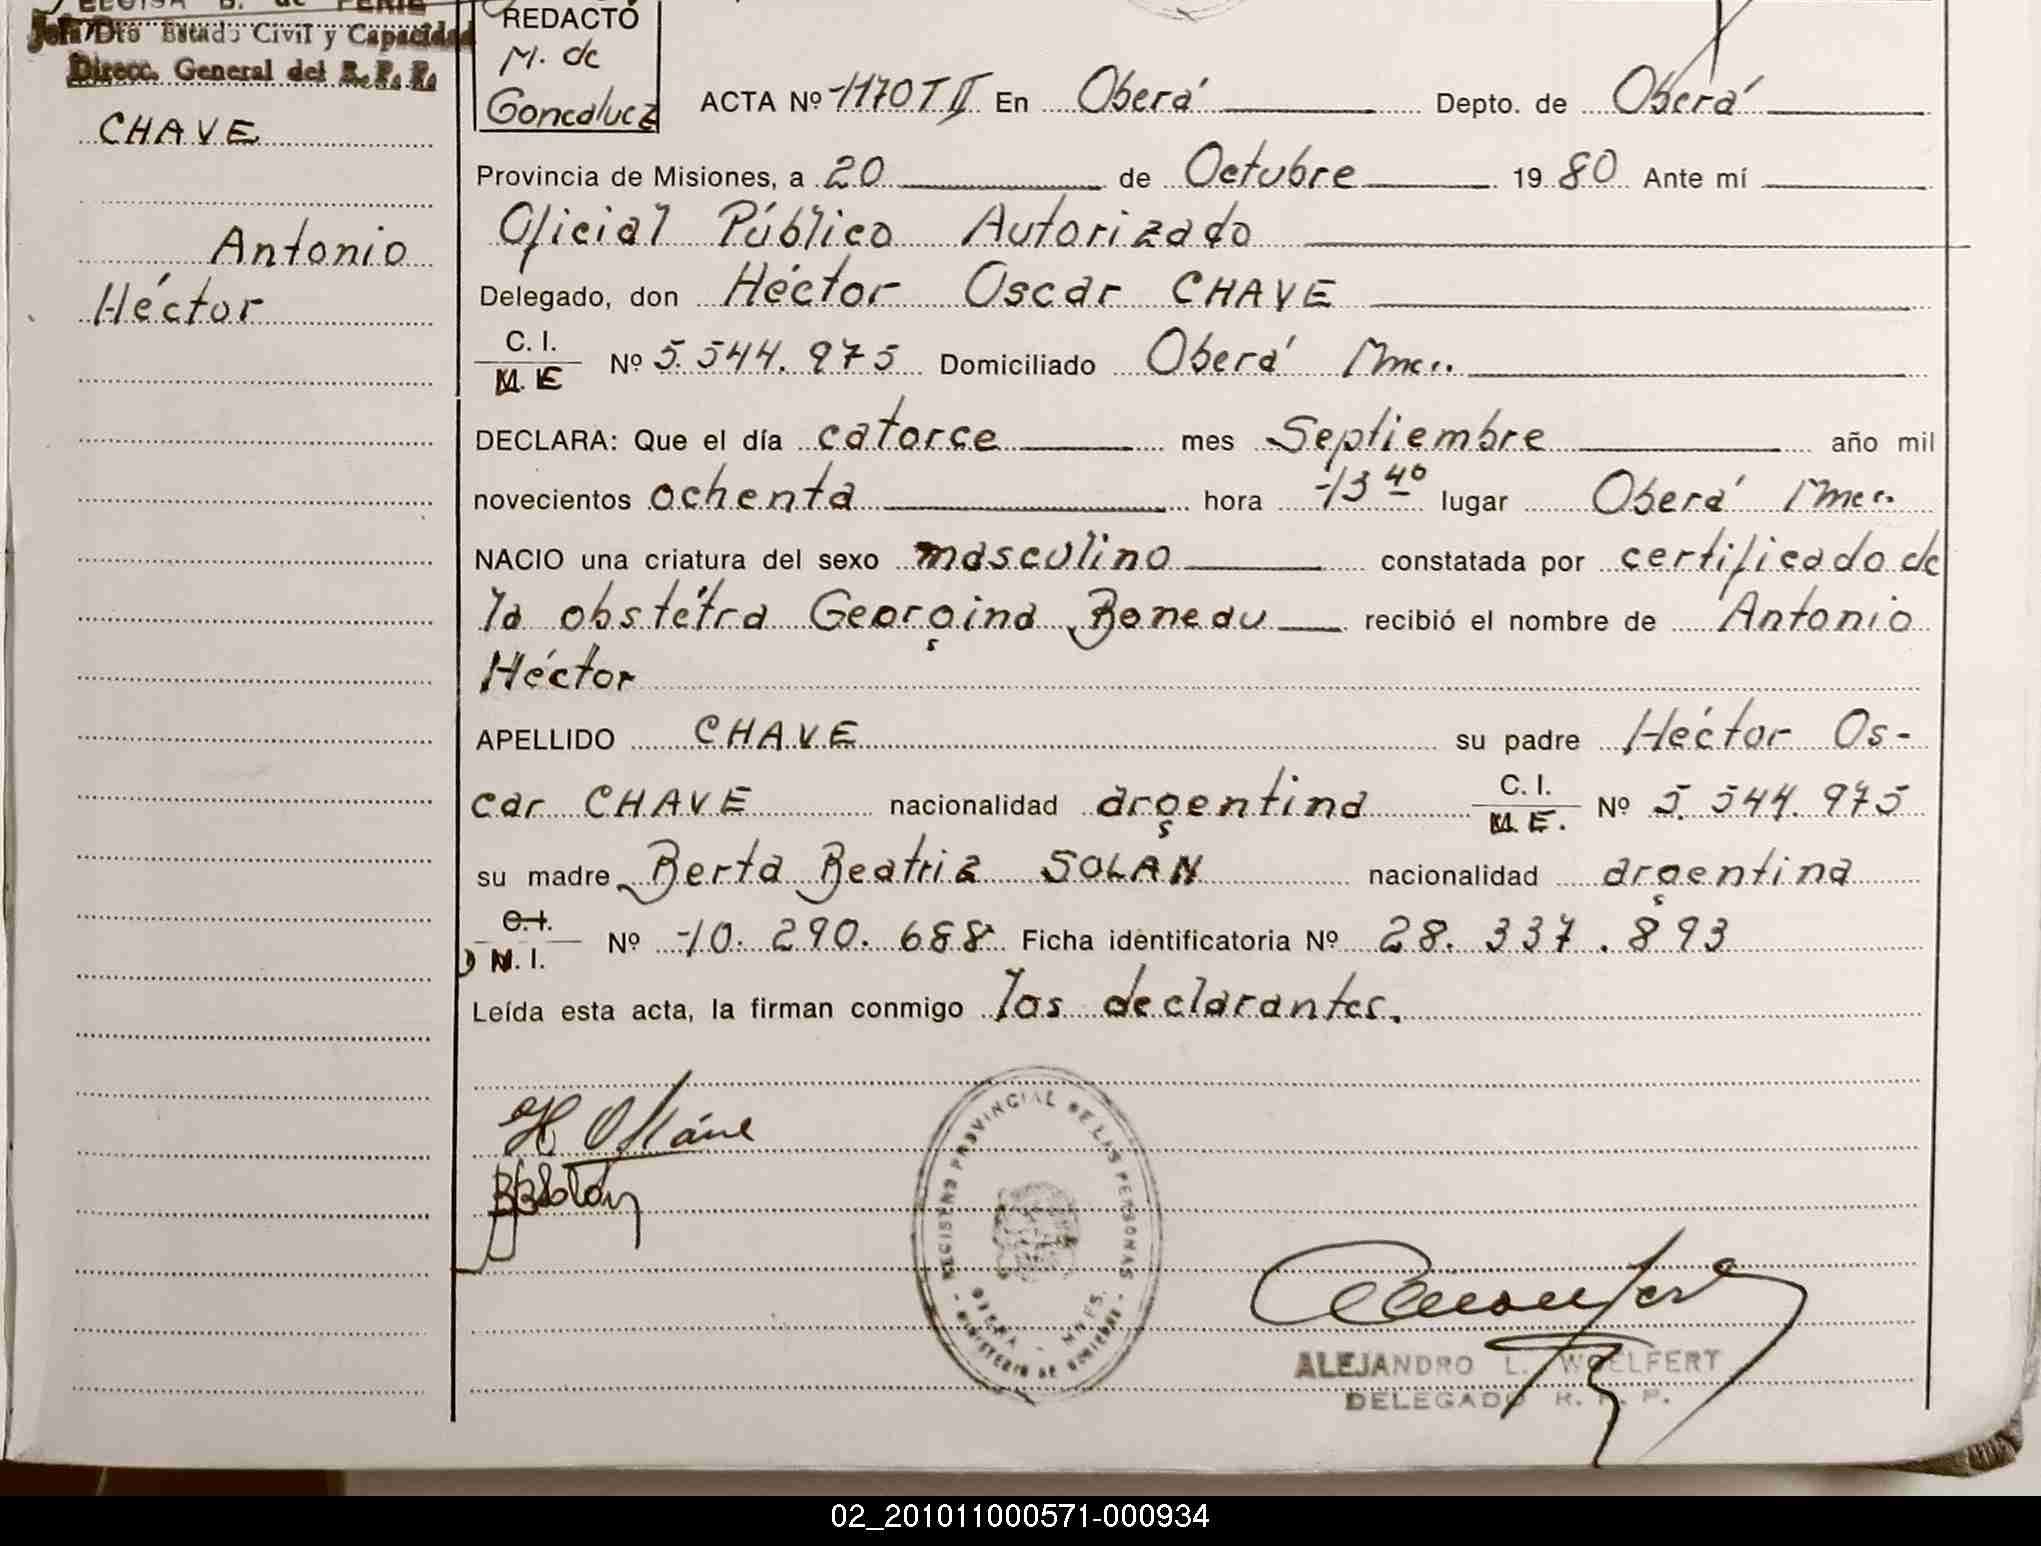 ELOISA B. de FERIE
Jefa Dto Estado Civil y Capacidad
Direcc. General del R. P. P.
CHAVE
Antonio
Héctor
REDACTÓ
M. de
Goncaluez
ACTA Nº 1170 T II En Oberá Depto. de Oberá
Provincia de Misiones, a 20 de Octubre 1980 Ante mí
Oficial Público Autorizado
Delegado, don Héctor Oscar CHAVE
C. I.
M. E Nº 5.544.975 Domiciliado Oberá Mnes.
DECLARA: Que el día catorce mes Septiembre año mil
novecientos ochenta hora 13 40 lugar Oberá Mnes.
NACIO una criatura del sexo masculino constatada por certificado de
la obstétra Georgina Boneau recibió el nombre de Antonio
Héctor
APELLIDO CHAVE su padre Héctor Os-
car CHAVE nacionalidad argentina C. I. M. E. Nº 5.544.975
su madre Berta Beatriz SOLAN nacionalidad argentina
C. I.
M. I. Nº 10.290.688 Ficha identificatoria Nº 28.337.893
Leída esta acta, la firman conmigo los declarantes.
BBSolán
REGISTRO PROVINCIAL DE LAS PERSONAS
OBERA - MNES.
- MINISTERIO DE GOBIERNO -
ALEJANDRO L. WOELFERT
DELEGADO R. P. P.
02_201011000571-000934